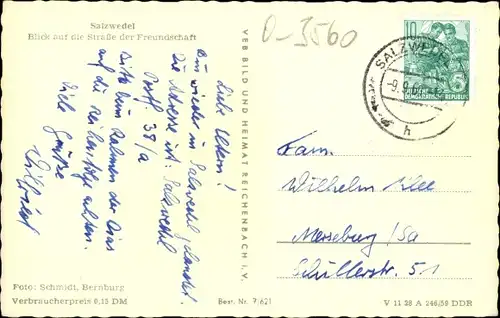 Salzwedel
Blick auf die Straße der Freundschaft
O-3560
10
SALZWEDEL
-9.9.
DEUTSCHE
DEMOKRATISCHE REPUBLIK
5
h
Liebe Eltern!
Bin wieder in Salzwedel
Die Adresse ist: Salzwedel
38/a
Bitte beim Rahmen der Dias
auf die Reihenfolge achten.
Viele Grüße
VEB BILD UND HEIMAT REICHENBACH i. V.
Fam.
Wilhelm Klee
Merseburg/Sa
Schüllerstr. 51
Foto: Schmidt, Bernburg
Verbraucherpreis 0,15 DM
Best. Nr. 7/621
V 11 28 A 246/59 DDR